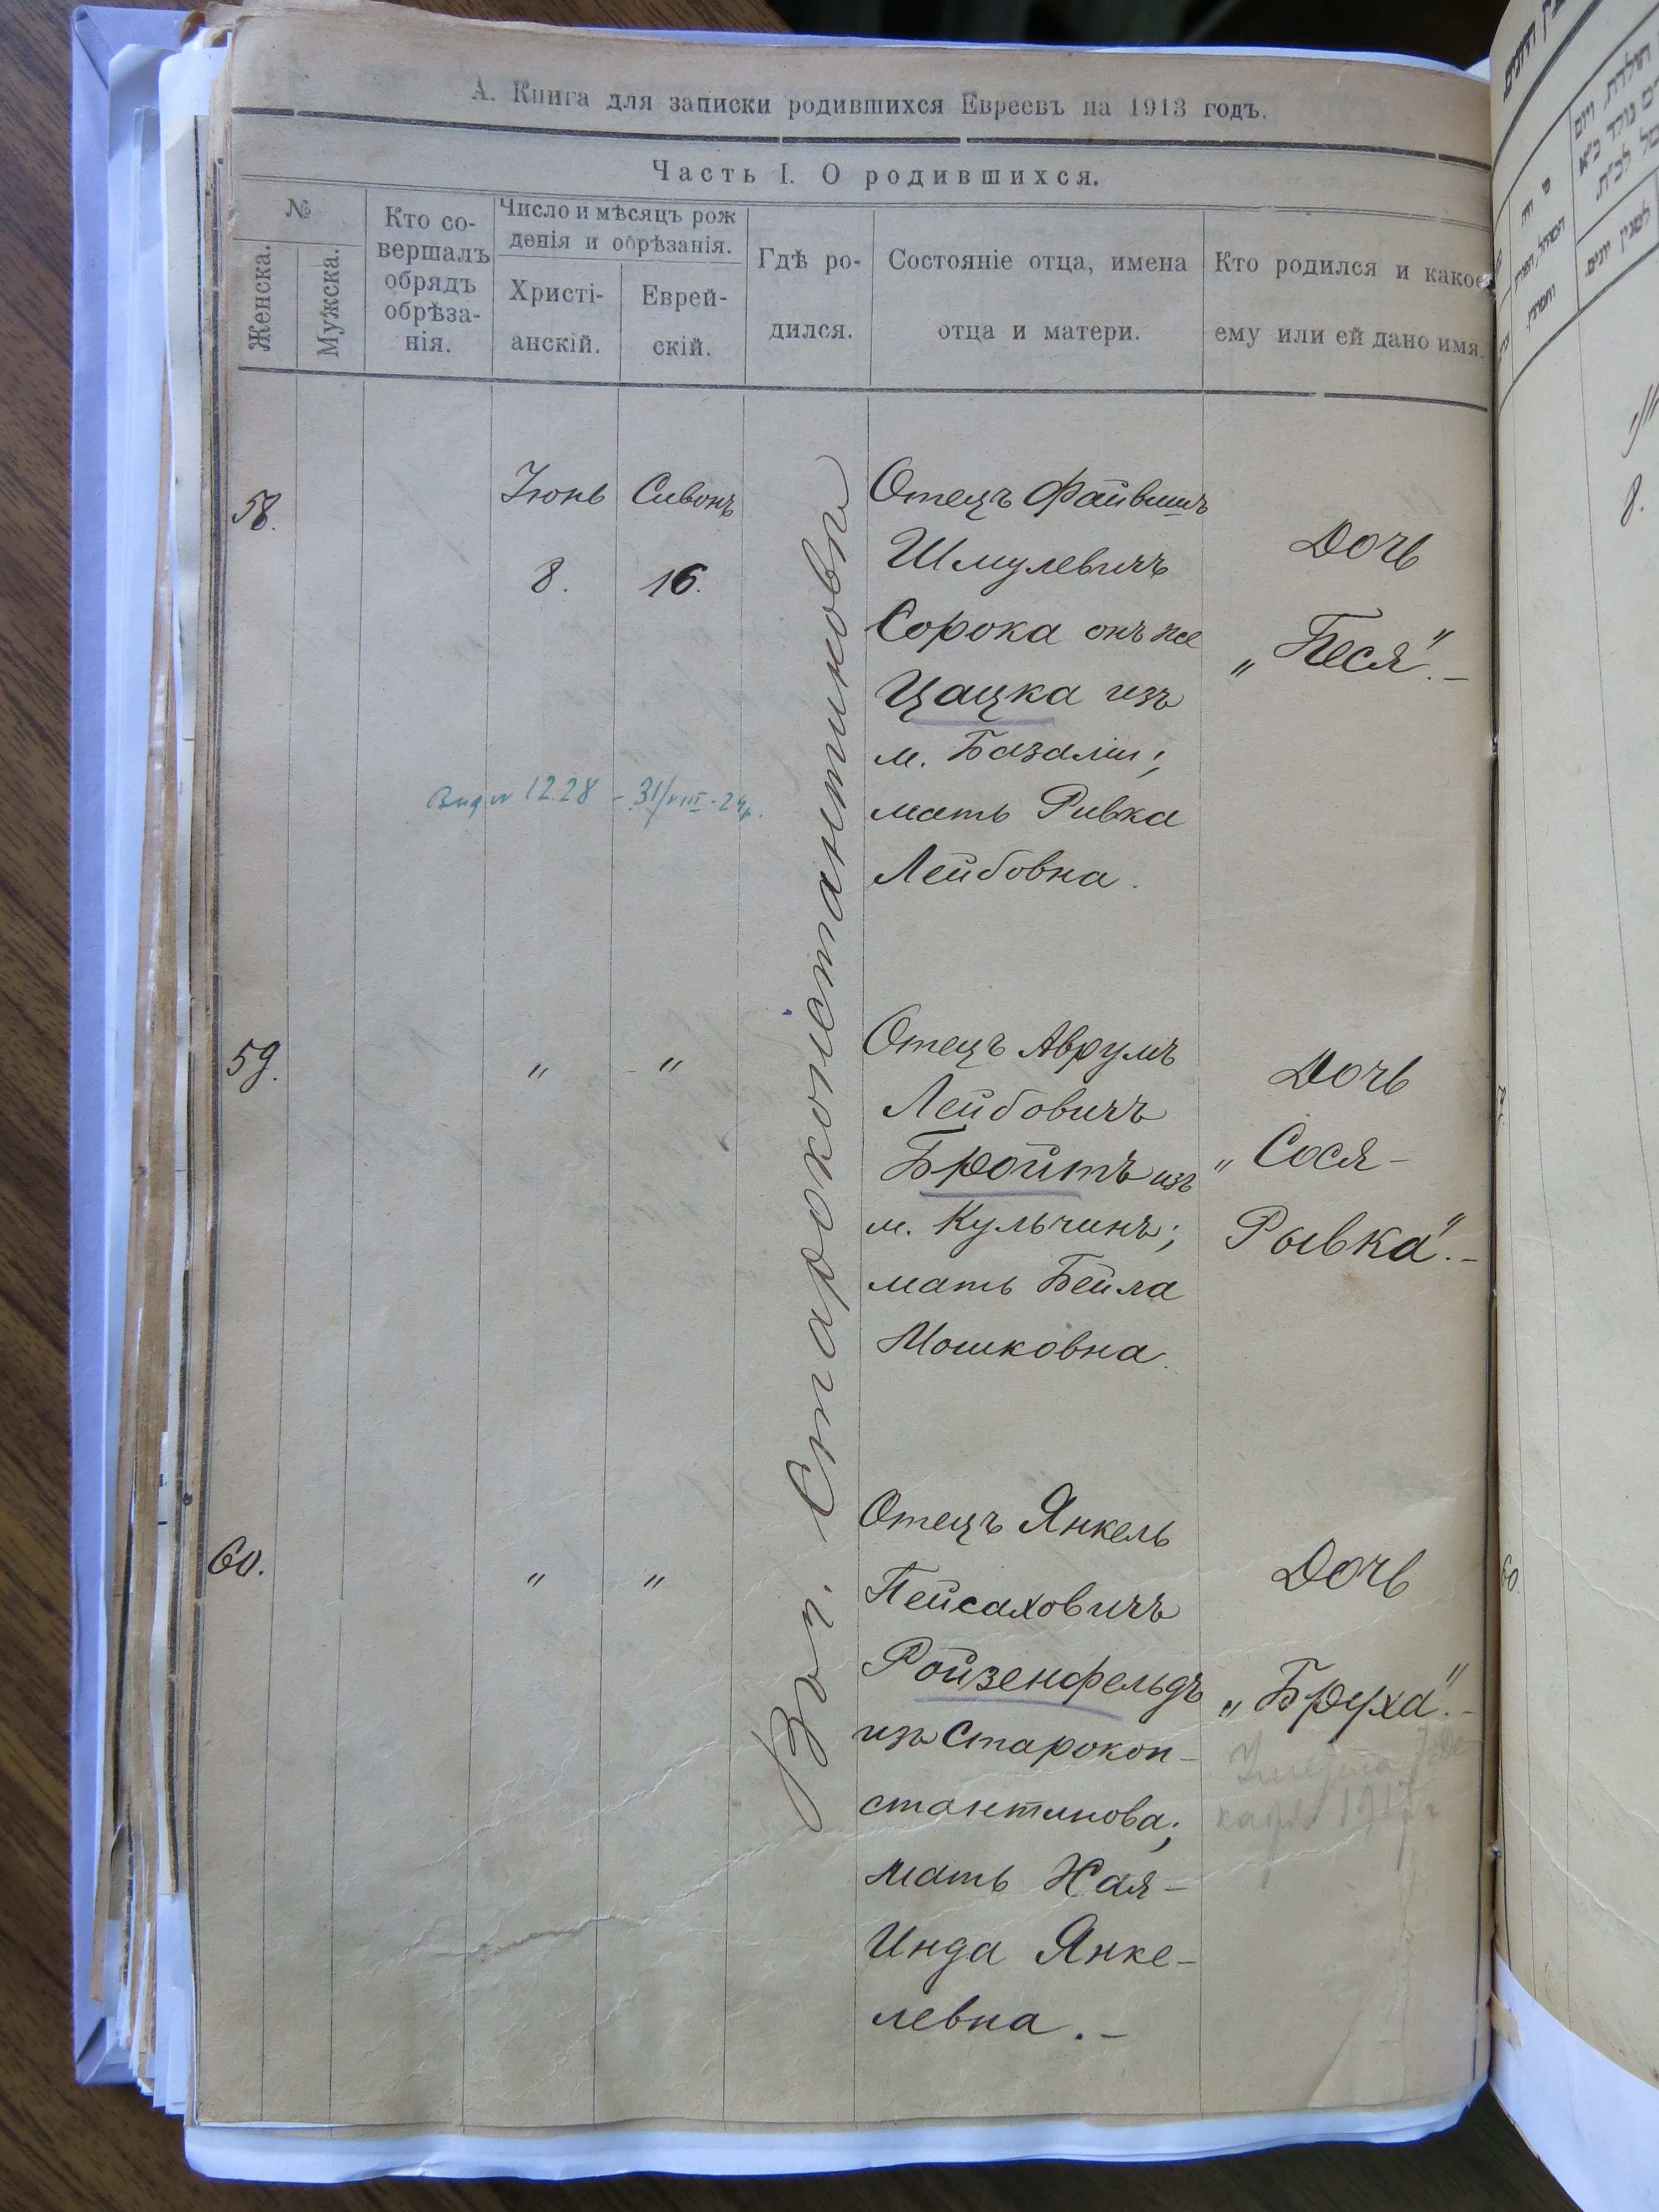 А. Книга для записки родившихся Евреевъ на 1913 годъ.
Часть I. О родившихся.
№
Женска.
Мужска.
Кто со-
вершалъ
обрядъ
обрѣза-
нія.
Число и мѣсяцъ рож
денія и обрѣзанія.
Христі-
анскій.
Еврей-
скій.
Гдѣ ро-
дился.
Состояніе отца, имена
отца и матери.
Кто родился и какое
ему или ей дано имя.
Староконстантиновѣ
58.
Іюнь Сивонъ
8. 16.
12.28 - 31/VIII-24г.
Отецъ Файвишъ
Шмулевичъ
Сорока онъ же
Цацка изъ
м. Базаліи;
мать Ривка
Лейбовна.
Дочь
„Песя".-
59.
" "
Отецъ Аврумъ
Лейбовичъ
Бройтъ изъ
м. Кульчинъ;
мать Бейла
Мошковна.
Дочь
„Сося-
Рывка".-
60.
" "
Отецъ Янкель
Пейсаховичъ
Ройзенфельдъ
изъ Старокон-
стантинова;
мать Хая-
Инда Янке-
левна.-
Дочь
„Бруха".-